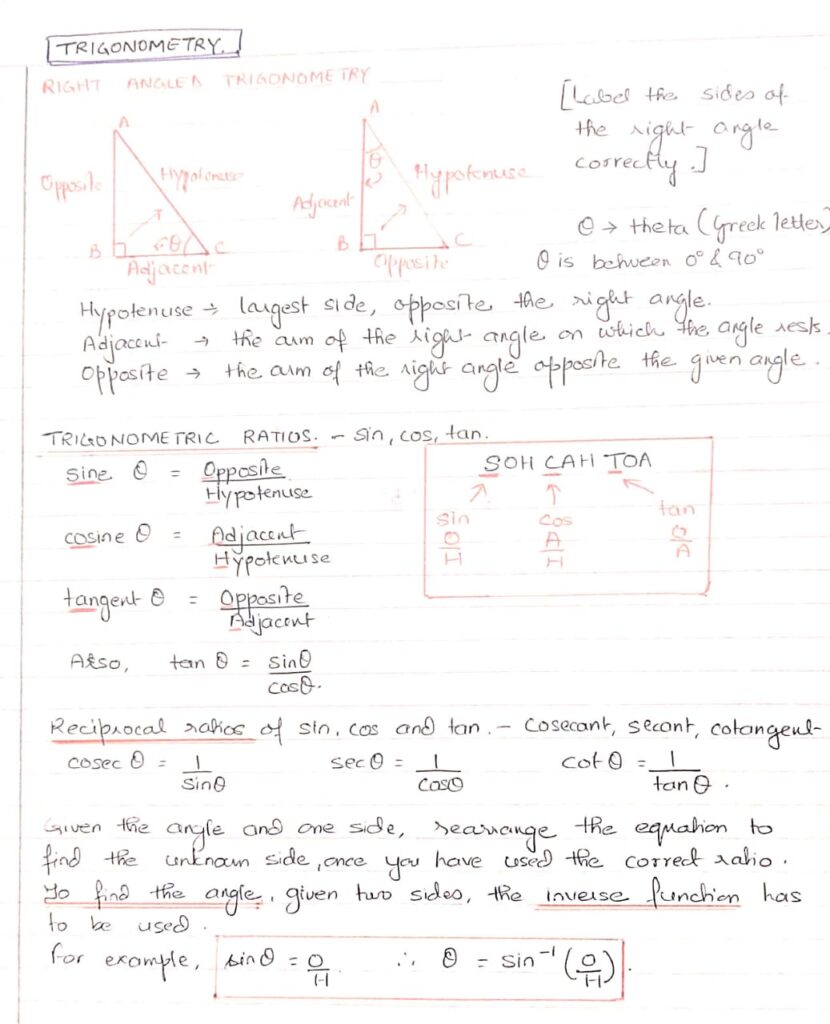 TRIGONOMETRY.
RIGHT ANGLED TRIGONOMETRY
A
Opposite
Hypotenuse
B
θ
C
Adjacent
A
θ
Adjacent
Hypotenuse
B
C
Opposite
[Label the sides of
the right angle
correctly.]
θ → theta (Greek letter)
θ is between 0° & 90°
Hypotenuse → largest side, opposite the right angle.
Adjacent → the arm of the right angle on which the angle rests.
Opposite → the arm of the right angle opposite the given angle.
TRIGONOMETRIC RATIOS. - sin, cos, tan.
sine θ = Opposite
Hypotenuse
cosine θ = Adjacent
Hypotenuse
tangent θ = Opposite
Adjacent
Also, tan θ = sinθ
cosθ.
SOH CAH TOA
sin cos tan
O A O
H H A
Reciprocal ratios of sin, cos and tan. - Cosecant, secant, cotangent
cosec θ = 1 sec θ = 1 cot θ = 1
sinθ cosθ tanθ.
Given the angle and one side, rearrange the equation to
find the unknown side, once you have used the correct ratio.
To find the angle, given two sides, the inverse function has
to be used.
For example, sinθ = O ∴ θ = sin⁻¹ (O
H H).